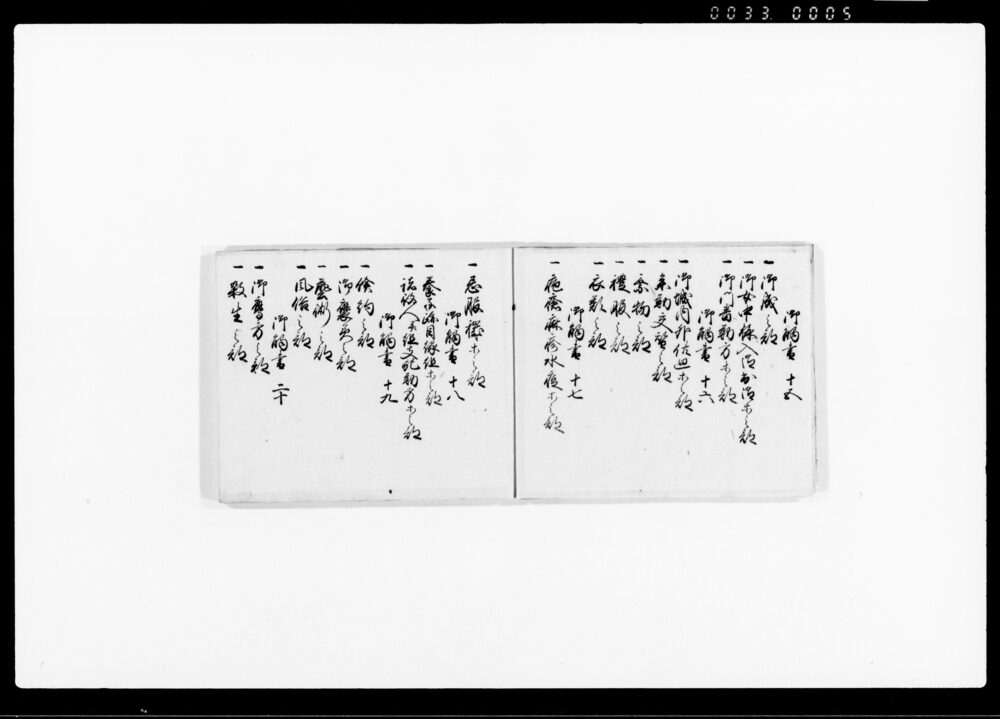 0033. 0005
御觸書 十五
一 御成之部
一 御女中様入御出御等之部
一 御門番勤方等之部
御觸書 十六
一 御城内外往辺等之部
一 参勤交替之部
一 乗物之部
一 禮服之部
一 衣類之部
御觸書 十七
一 疱瘡麻疹水痘等之部
一 忌服穢等之部
御觸書 十八
一 養子跡目縁組等之部
一 諸役人并組支配勤方等之部
御觸書 十九
一 儉約之部
一 御褒美之部
一 藝術之部
一 風俗之部
御觸書 二十
一 御鷹方之部
一 殺生之部